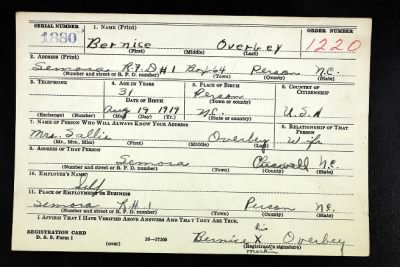 SERIAL NUMBER 1. NAME (Print) ORDER NUMBER
1330 Bernice Overbey 1220
(First) (Middle) (Last)
2. ADDRESS (Print)
Semora R.F.D #1 Box 64 Person N.C.
(Number and street or R. F. D. number) (Town) (County) (State)
3. TELEPHONE 4. AGE IN YEARS 5. PLACE OF BIRTH 6. COUNTRY OF CITIZENSHIP
31 Person
DATE OF BIRTH (Town or county)
Aug 19 1919 N.C. U.S.A
(Exchange) (Number) (Mo.) (Day) (Yr.) (State or country)
7. NAME OF PERSON WHO WILL ALWAYS KNOW YOUR ADDRESS 8. RELATIONSHIP OF THAT PERSON
Mrs. Sallie Overbey Wife
(Mr., Mrs., Miss) (First) (Middle) (Last)
9. ADDRESS OF THAT PERSON
Semora Caswell N.C.
(Number and street or R. F. D. number) (Town) (County) (State)
10. EMPLOYER'S NAME
Self
11. PLACE OF EMPLOYMENT OR BUSINESS
Semora R#1 Person N.C.
(Number and street or R. F. D. number) (Town) (County) (State)
I AFFIRM THAT I HAVE VERIFIED ABOVE ANSWERS AND THAT THEY ARE TRUE.
REGISTRATION CARD his
D. S. S. Form 1 (over) 16—17105 Bernice X Overbey
(Registrant's signature)
mark